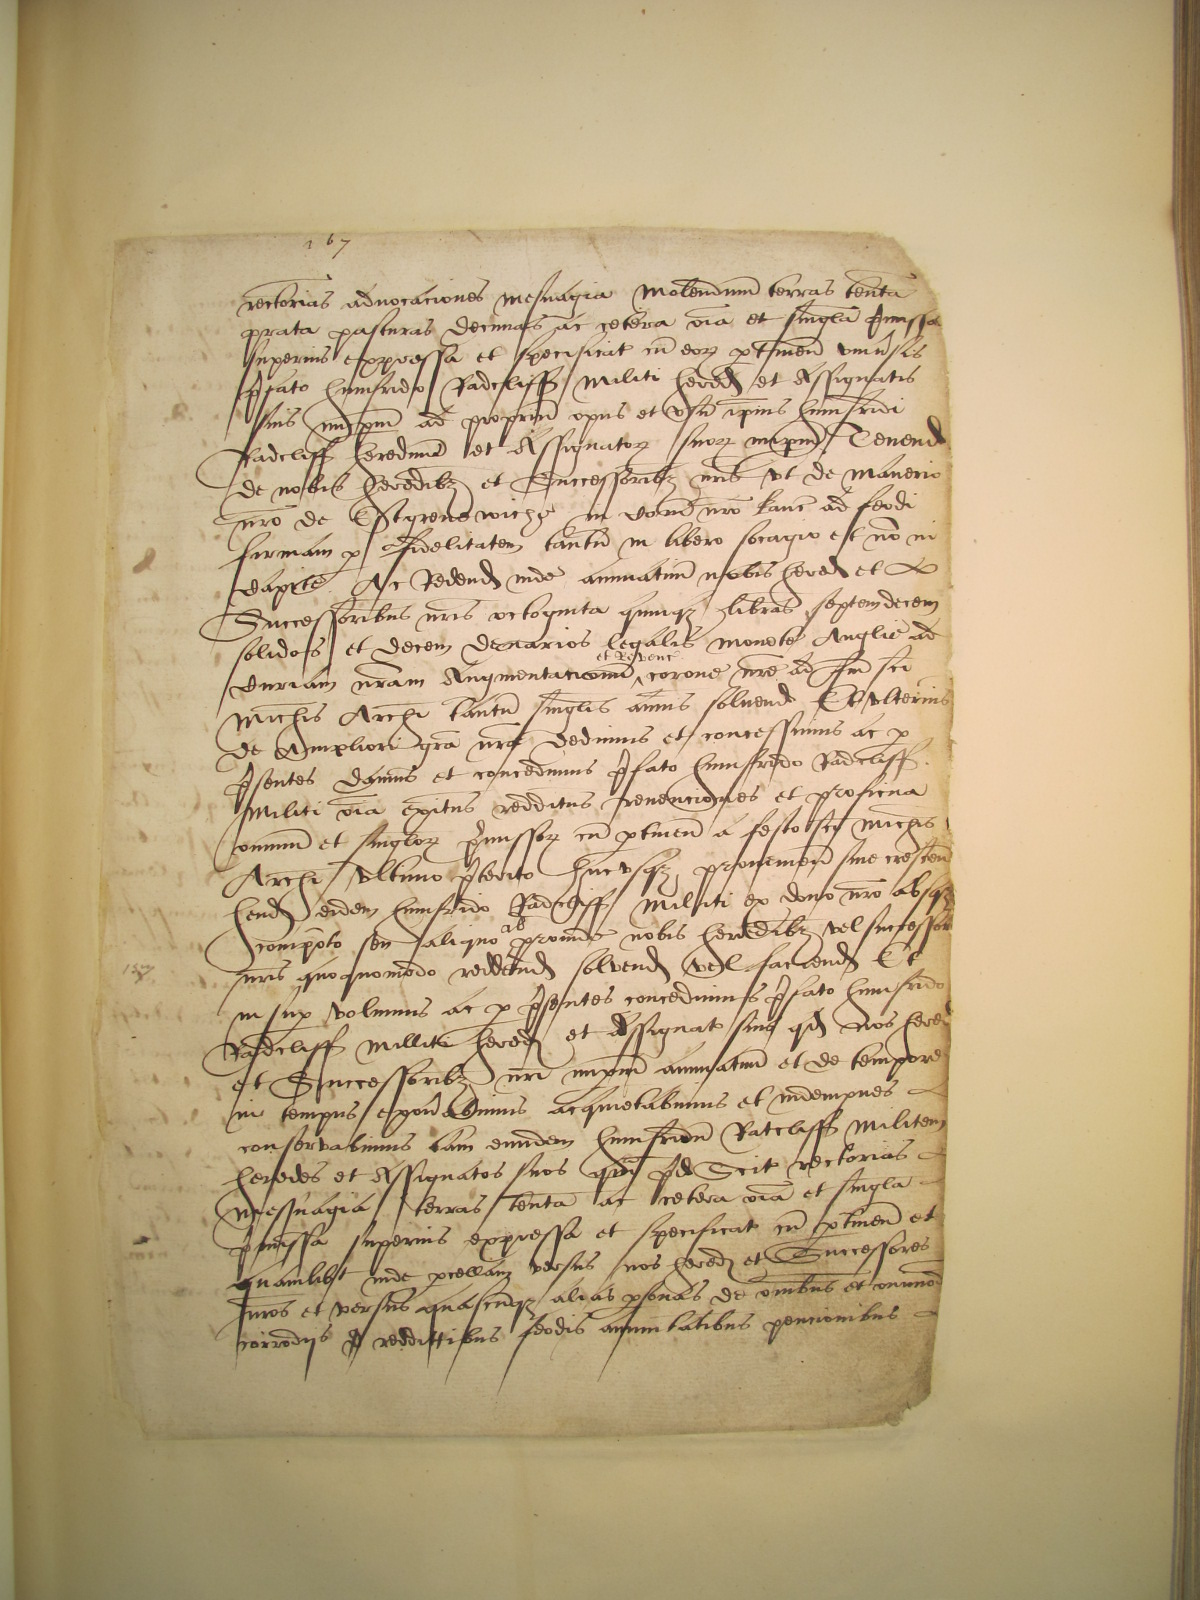 167
rectorias advocaciones mesuagia molendinum terras tenta
prata pasturas decimas ac cetera oia et singla pmissa
superius expressa et specificat cu eor ptinen univsis
pfato humfrido Radcliff militi hered et Assignatis
suis imppm ad propriu opus et usu ipius humfridi
Radcliff heredum et Assignator suor imppm Tenend
de nobis heredibz et Successoribz nris ut de manerio
nro de Estgrenewiche in Com nro Kanc ad feodi
firmam p fidelitatem tantu in libero socagio et no in
Capite Ac Redend inde annuatim nobis hered et
Successoribus nris octoginta quinqz libras septemdecem
solidos et decem denarios legalis monete Anglie ad
et Revenc
Curiam nram Augmentacionu corone nre ad fm sci
Michis Archi tantu singlis annis solvend Et ulterius
de Ampliori gra nra dedimus et concessimus ac p
psentes damus et concedimus pfato humfrido Radcliff
Militi oia exitus redditus revenciones et proficua
omnium et singlor pmissor cu ptinen a festo sci Michis
Archi ultimo pterito hucusqz provenien sive crescen
hend eidem humfrido Radcliff Militi ex dono nro absqz
compoto seu aliquo proinde nobis heredibz vel successor
nris quoquomodo reddend solvend vel faciend Et
in sup volumus ac p psentes concedimus pfato humfrido
Radcliff Milliti hered et Assignat suis qd nos hered
et Successoribz nri imppm annuatim et de tempore
in tempus exonabimus acquietabimus et indempnes
conservabimus tam eundem humfridu Ratcliff militem
heredes et Assignatos suos qm pd Scit rectorias
Messuagia terras tenta ac cetera oia et singla
pmissa superius expressa et specificat cu ptinen et
quamlibt inde pcellam versus nos hered et Successores
nros et versus quascuqz alias psonas de omibus et omimod
corrodijs redditibus feodis annuitatibus pencionibus